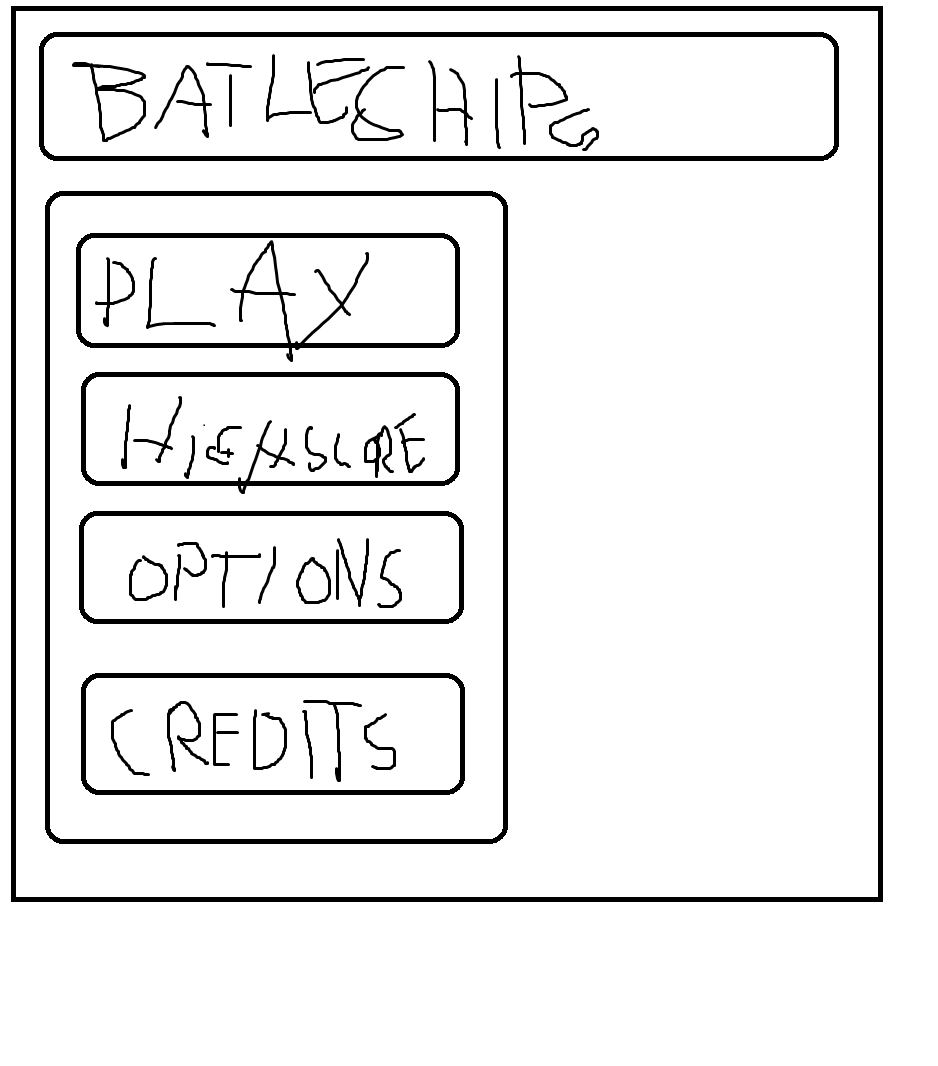 BATLESHIPS
PLAY
HIGHSCORE
OPTIONS
CREDITS